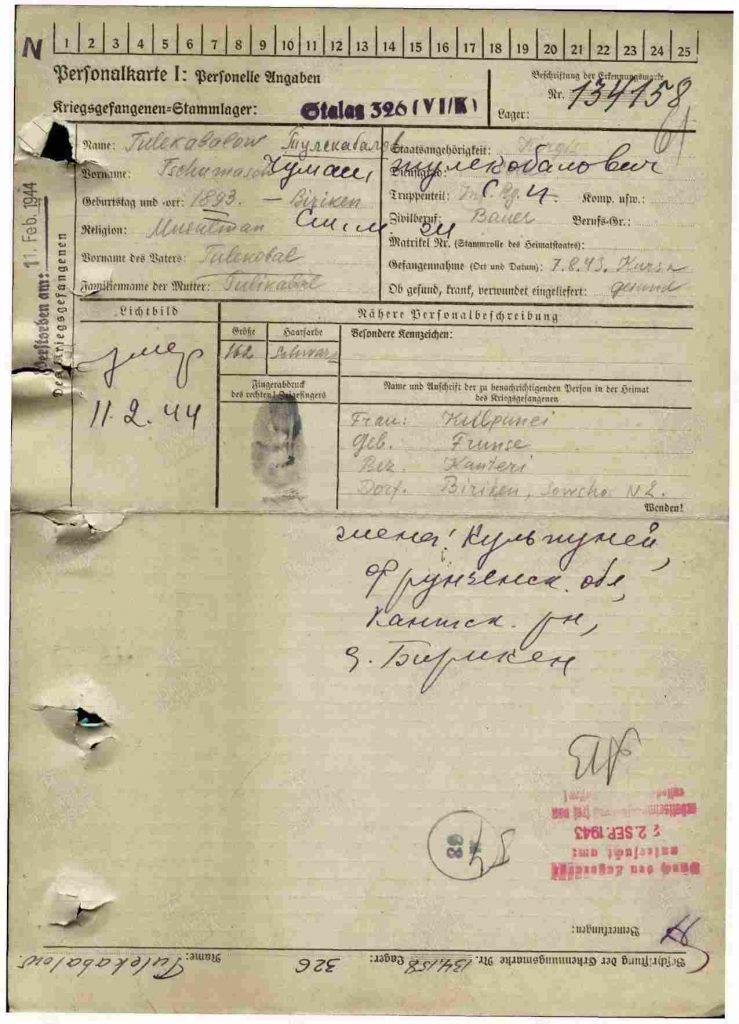 N
1 2 3 4 5 6 7 8 9 10 11 12 13 14 15 16 17 18 19 20 21 22 23 24 25
Personalkarte I: Personelle Angaben
Beschriftung der Erkennungsmarke
Nr. 134158
Kriegsgefangenen=Stammlager: Stalag 326 (VI/K)
Lager:
Name: Tulekabalow Тулекабалов
Staatsangehörigkeit: Kirgis
Vorname: Чуман, тулекобалович
Dienstgrad:
Geburtstag und -ort: 1893. — Biriken
Truppenteil: Komp. usw.:
Religion: Musulman
Zivilberuf: Bauer Berufs-Gr.:
Matrikel Nr. (Stammrolle des Heimatstaates):
Vorname des Vaters: Tulekobal
Gefangennahme (Ort und Datum): 7.8.43. Kursk
Familienname der Mutter: Tulikabal
Ob gesund, krank, verwundet eingeliefert: gesund
Verstorben am: 11. Feb. 1944
Des Kriegsgefangenen
Lichtbild
Nähere Personalbeschreibung
Größe Haarfarbe Besondere Kennzeichen:
162 Schwarz
умер
11.2.44
Fingerabdruck
des rechten Zeigefingers
Name und Anschrift der zu benachrichtigenden Person in der Heimat
des Kriegsgefangenen
Frau: Kulpunei
Geb. Frunse
Bez. Kanteri
Dorf. Biriken, Sowcho. N 2.
Wenden!
жена: Культуней,
Фрунзенск. обл,
Кантск. рн,
д. Бирикен
2. SEP. 1943
untersucht am:
Bemerkungen:
Beschriftung der Erkennungsmarke Nr. 134158 Lager: 326 Name: Tulekabalow